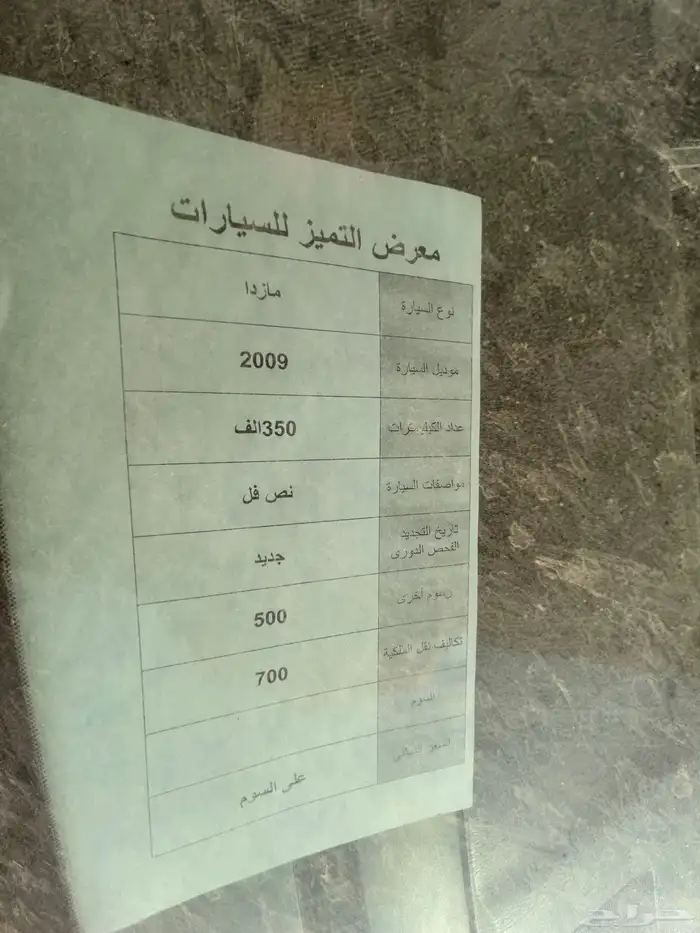 معرض التميز للسيارات
نوع السيارة مازدا
موديل السيارة 2009
عداد الكيلومترات 350الف
مواصفات السيارة نص فل
تاريخ التجديد
الفحص الدوري جديد
رسوم أخرى 500
تكاليف نقل الملكية 700
السوم
السعر النهائي على السوم
حراج